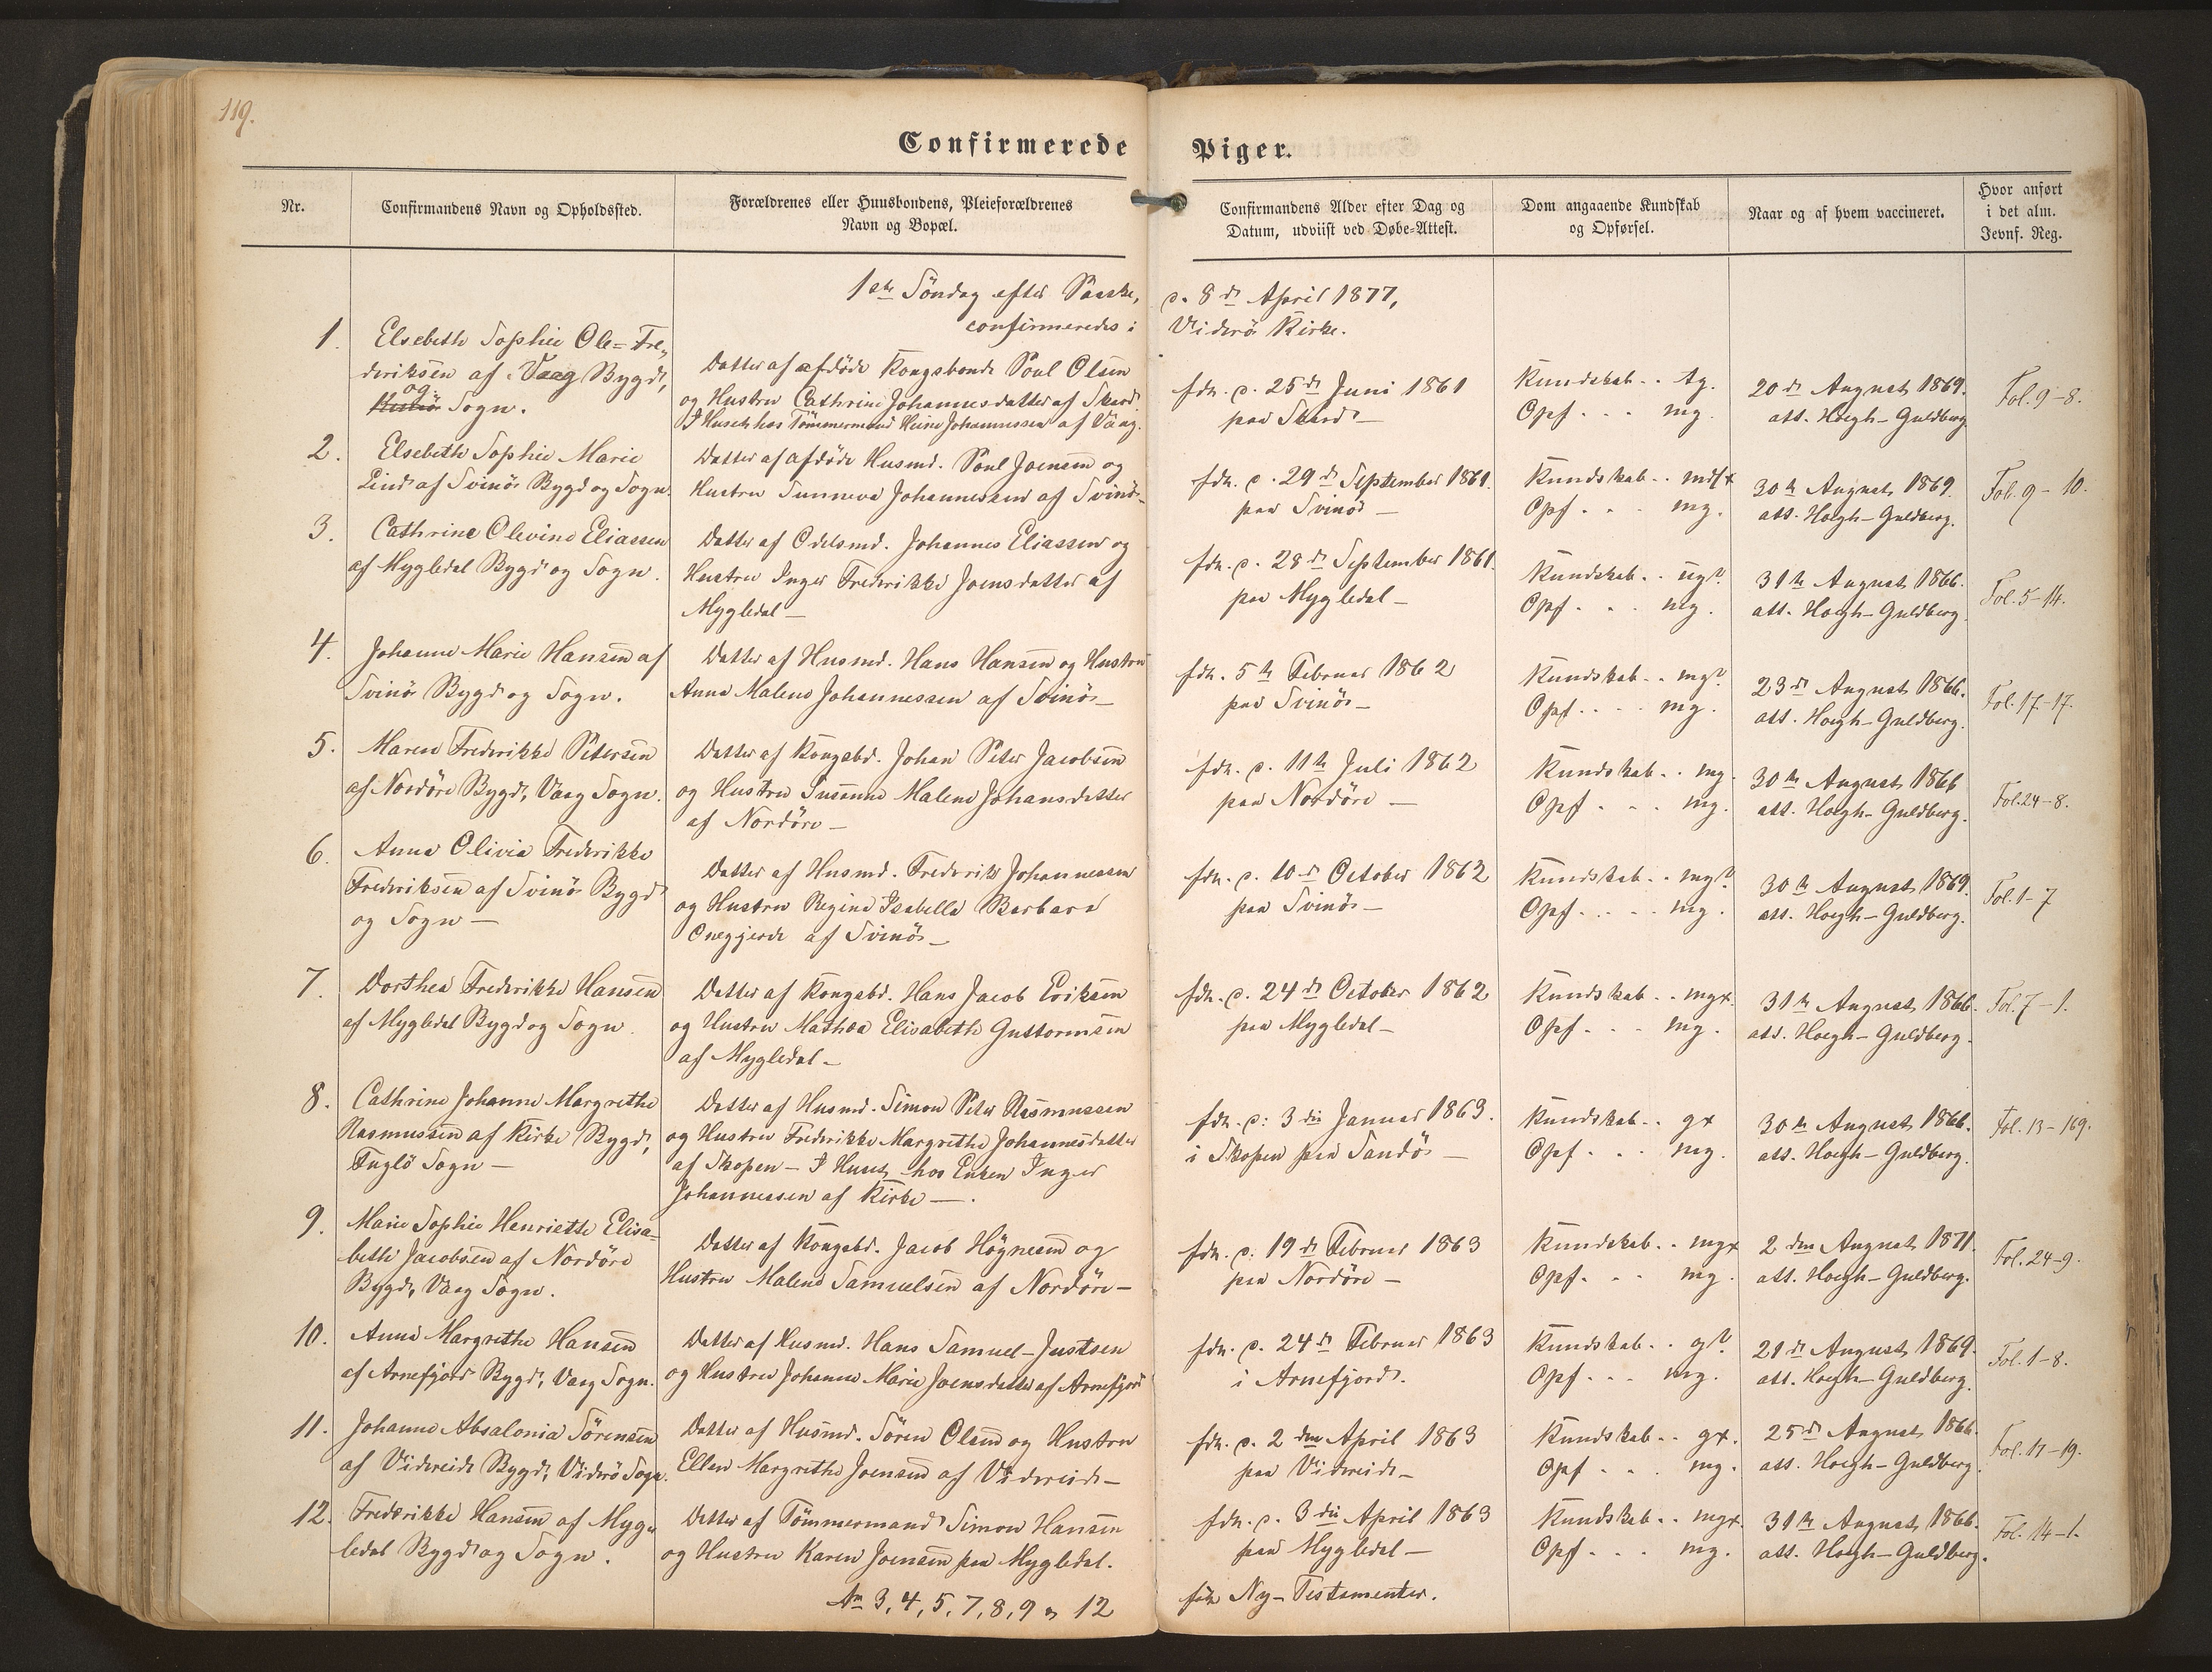 119.
Confirmerede Piger.
Nr.
Confirmandens Navn og Opholdssted.
Forældrenes eller Huusbondens, Pleieforældrenes
Navn og Bopæl.
Confirmandens Alder efter Dag og
Datum, udviist ved Døbe-Attest.
Dom angaaende Kundskab
og Opførsel.
Naar og af hvem vaccineret.
Hvor anført
i det alm.
Jevnf. Reg.
1ste Söndag efter Paaske, d. 8de April 1877,
confirmeredes i Viderö Kirke.
1.
Elsebeth Sophie Ole-Fre„
deriksen af Vaag Bygd,
og
Sogn.
Datter af afdöde Kongsbonde Poul Olsen
og Hustru Cathrine Johannesdatter af Skard.
I Huset hos Tömmermand Heine Johannessen af Vaag.
fdt. d. 25de Juni 1861
paa Skard —
Kundskab . . tg.
Opf . . . mg.
20de August 1869.
att. Hoegh-Guldberg
Fol. 9-8.
2.
Elsebeth Sophie Marie
Lind af Svinö Bygd og Sogn.
Datter af afdöde Husmd. Poul Joensen og
Hustru Sunneva Johannesdatter af Svinö —
fdt. d. 29de September 1861.
paa Svinö —
Kundskab . . mdlx
Opf . . . mg.
30te August 1869.
att. Hoegh-Guldberg.
Fol. 9-10.
3.
Cathrine Olevine Eliassen
af Mygledal Bygd og Sogn.
Datter af Odelsmd. Johannes Eliassen og
Hustru Inger Frederikke Joensdatter af
Mygledal —
fdt. d. 28de September 1861.
paa Mygledal —
Kundskab . . ug?
Opf . . . mg.
31te August 1866.
att. Hoegh-Guldberg.
Fol. 5-14.
4.
Johanne Marie Hansen af
Svinö Bygd og Sogn.
Datter af Husmd. Hans Hansen og Hustru
Anna Malene Johannessen af Svinö —
fdt. 5te Februar 1862
paa Svinö —
Kundskab . . mg?
Opf . . . mg.
23de August 1866.
att. Hoegh-Guldberg.
Fol. 17-17.
5.
Maren Frederikke Petersen
af Nordöre Bygd, Vaag Sogn.
Datter af Kongsbd. Johan Peter Jacobsen
og Hustru Susanne Malene Johansdatter
af Nordöre —
fdt. d. 11te Juli 1862
paa Nordöre —
Kundskab . . mg.
Opf . . . mg.
30te August 1866
att. Hoegh-Guldberg.
Fol. 24-8.
6.
Anna Olivia Frederikke
Frederiksen af Svinö Bygd
og Sogn —
Datter af Husmd. Frederik Johannessen
og Hustru Regine Isabella Barbara
Onegjerde af Svinö —
fdt. d. 10de October 1862
paa Svinö —
Kundskab . . mg?
Opf . . . mg.
30te August 1869.
att. Hoegh-Guldberg.
Fol. 1-7
7.
Dorthea Frederikke Hansen
af Mygledal Bygd og Sogn.
Datter af Kongsbd. Hans Jacob Eriksen
og Hustru Mathea Elisabeth Guttormsen
af Mygledal —
fdt. d. 24de October 1862
paa Mygledal —
Kundskab . . mgx.
Opf . . . mg.
31te August 1866.
att. Hoegh-Guldberg.
Fol. 7-1.
8.
Cathrine Johanne Margrethe
Rasmussen af Kirke Bygd,
Fuglö Sogn —
Datter af Husmd. Simon Peter Rasmussen
og Hustru Frederikke Margrethe Johannesdatter
af Skopen — I Huset hos Enken Inger
Johannessen af Kirke —.
fdt. d: 3die Januar 1863.
i Skopen paa Sandö —
Kundskab . . gx
Opf . . . mg.
30te August 1866.
att. Hoegh-Guldberg.
Fol. 13-169.
9.
Marie Sophie Henriette Elisa-
beth Jacobsen af Nordöre
Bygd, Vaag Sogn.
Datter af Kongsbd. Jacob Högnesen og
Hustru Malene Samuelsen af Nordöre —
fdt. d. 19de Februar 1863
paa Nordöre —
Kundskab . . mgx
Opf . . . mg.
2den August 1871.
att. Hoegh-Guldberg.
Fol. 24-9.
10.
Anna Margrethe Hansen
af Arnefjord Bygd, Vaag Sogn.
Datter af Husmd. Hans Samuel-Justsen
og Hustru Johanne Marie Joensdatter af Arnefjord
fdt. d. 24de Februar 1863
i Arnefjord.
Kundskab . . g?
Opf . . . mg.
21de August 1869.
att. Hoegh-Guldberg.
Fol. 1-8.
11.
Johanne Absalonia Sörensen
af Videreide Bygd, Viderö Sogn.
Datter af Husmd. Sören Olsen og Hustru
Ellen Margrethe Joensen af Videreide —
fdt. d. 2den April 1863
paa Videreide —
Kundskab . . gx.
Opf . . . mg.
25de August 1866.
att. Hoegh-Guldberg.
Fol. 11-19.
12.
Frederikke Hansen af Myg„
ledal Bygd og Sogn.
Datter af Tömmermand Simon Hansen
og Hustru Karen Joensen paa Mygledal.
fdt. d. 3die April 1863
paa Mygledal —
Kundskab . . mgx.
Opf . . . mg.
31te August 1866.
att. Hoegh-Guldberg.
Fol. 14-1.
No 3, 4, 5, 7, 8, 9 og 12 fik Ny-Testamenter.